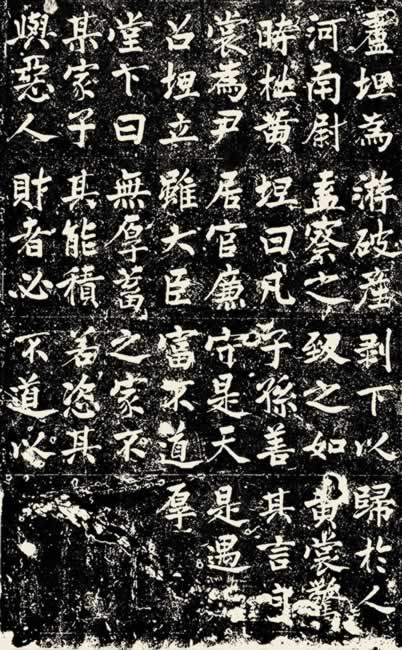 盧坦為
河南尉
時杜黃
裳為尹
召坦立
堂下曰
某家子
與惡人
游破產
盍察之
坦曰凡
居官廉
雖大臣
無厚蓄
其能積
財者必
剥下以
致之如
子孫善
守是天
富不道
之家不
若恣其
不道以
歸於人
黃裳驚
其言自
是遇
厚